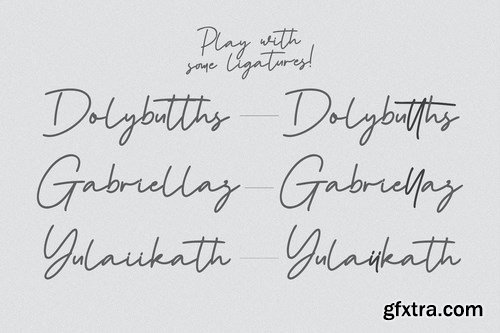 Play with
some ligatures!
Dolybuttths — Dolybuttths
Gabriellaz — Gabriellaz
Yulaiikath — Yulaiikath
gfxtra.com